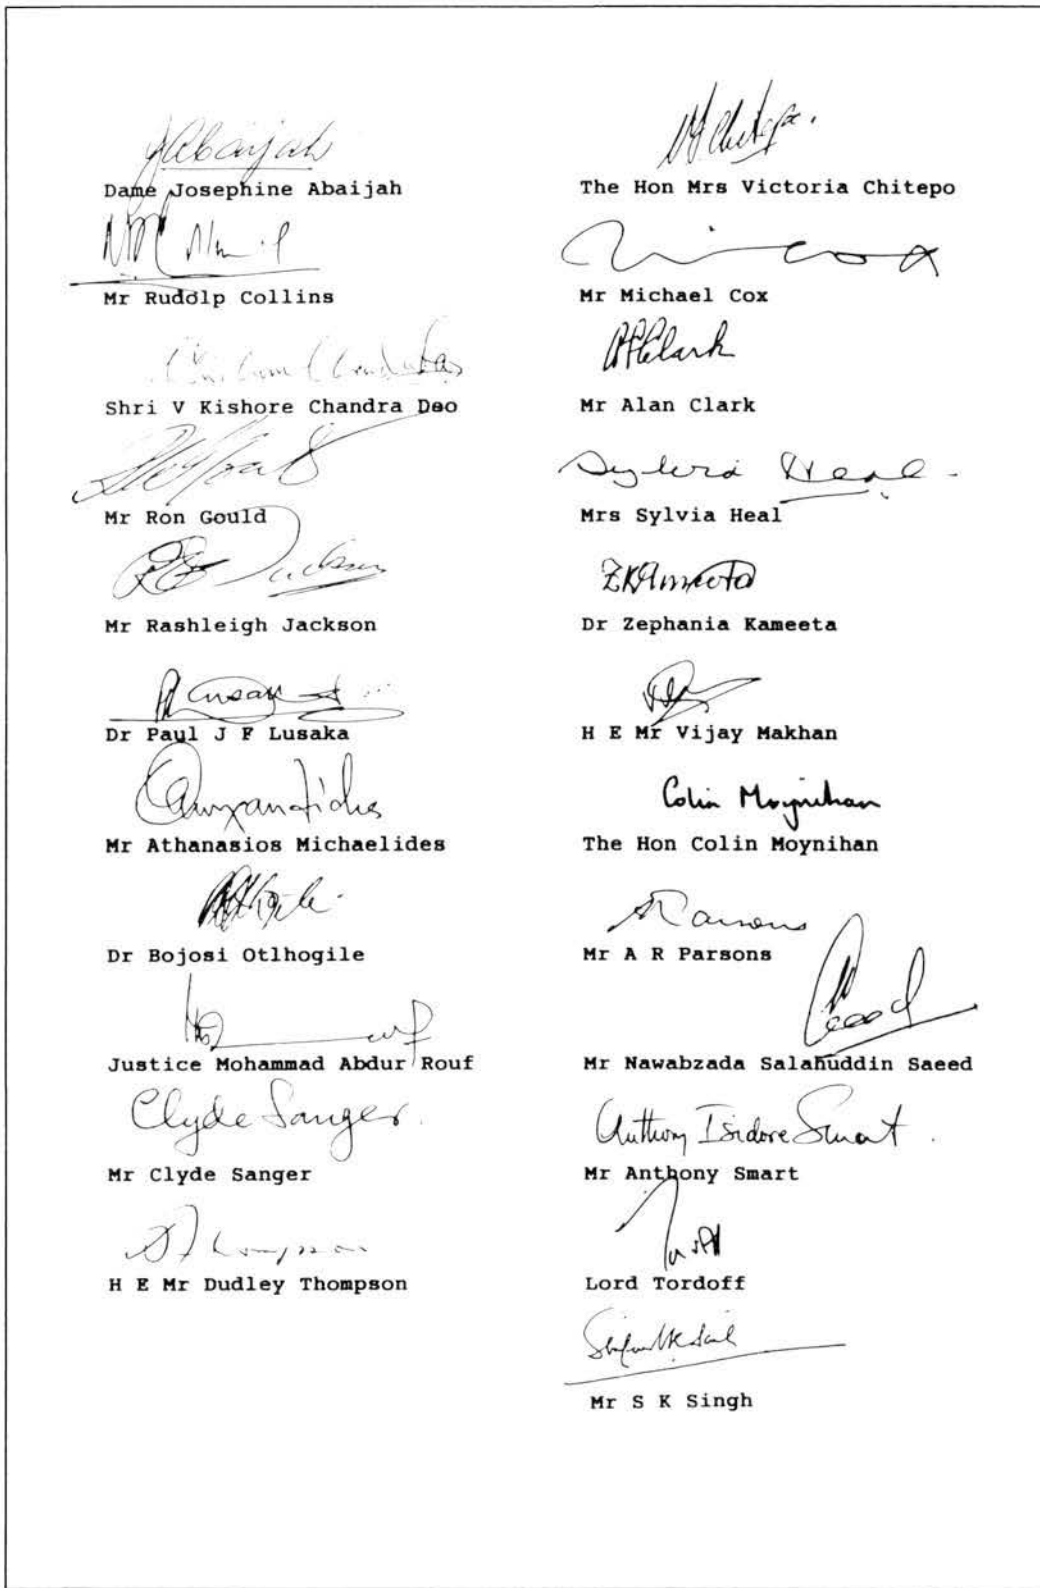 JAbaijah
Dame Josephine Abaijah
Mr Rudolp Collins
Shri V Kishore Chandra Deo
Mr Ron Gould
Jackson
Mr Rashleigh Jackson
Dr Paul J F Lusaka
Mr Athanasios Michaelides
Dr Bojosi Otlhogile
Justice Mohammad Abdur Rouf
Clyde Sanger.
Mr Clyde Sanger
DThompson
H E Mr Dudley Thompson
The Hon Mrs Victoria Chitepo
Cox
Mr Michael Cox
Clark
Mr Alan Clark
Sylvia Heal
Mrs Sylvia Heal
ZKAmeeta
Dr Zephania Kameeta
H E Mr Vijay Makhan
Colin Moynihan
The Hon Colin Moynihan
ARParsons
Mr A R Parsons
Saeed
Mr Nawabzada Salahuddin Saeed
Anthony Isidore Smart.
Mr Anthony Smart
Lord Tordoff
Mr S K Singh